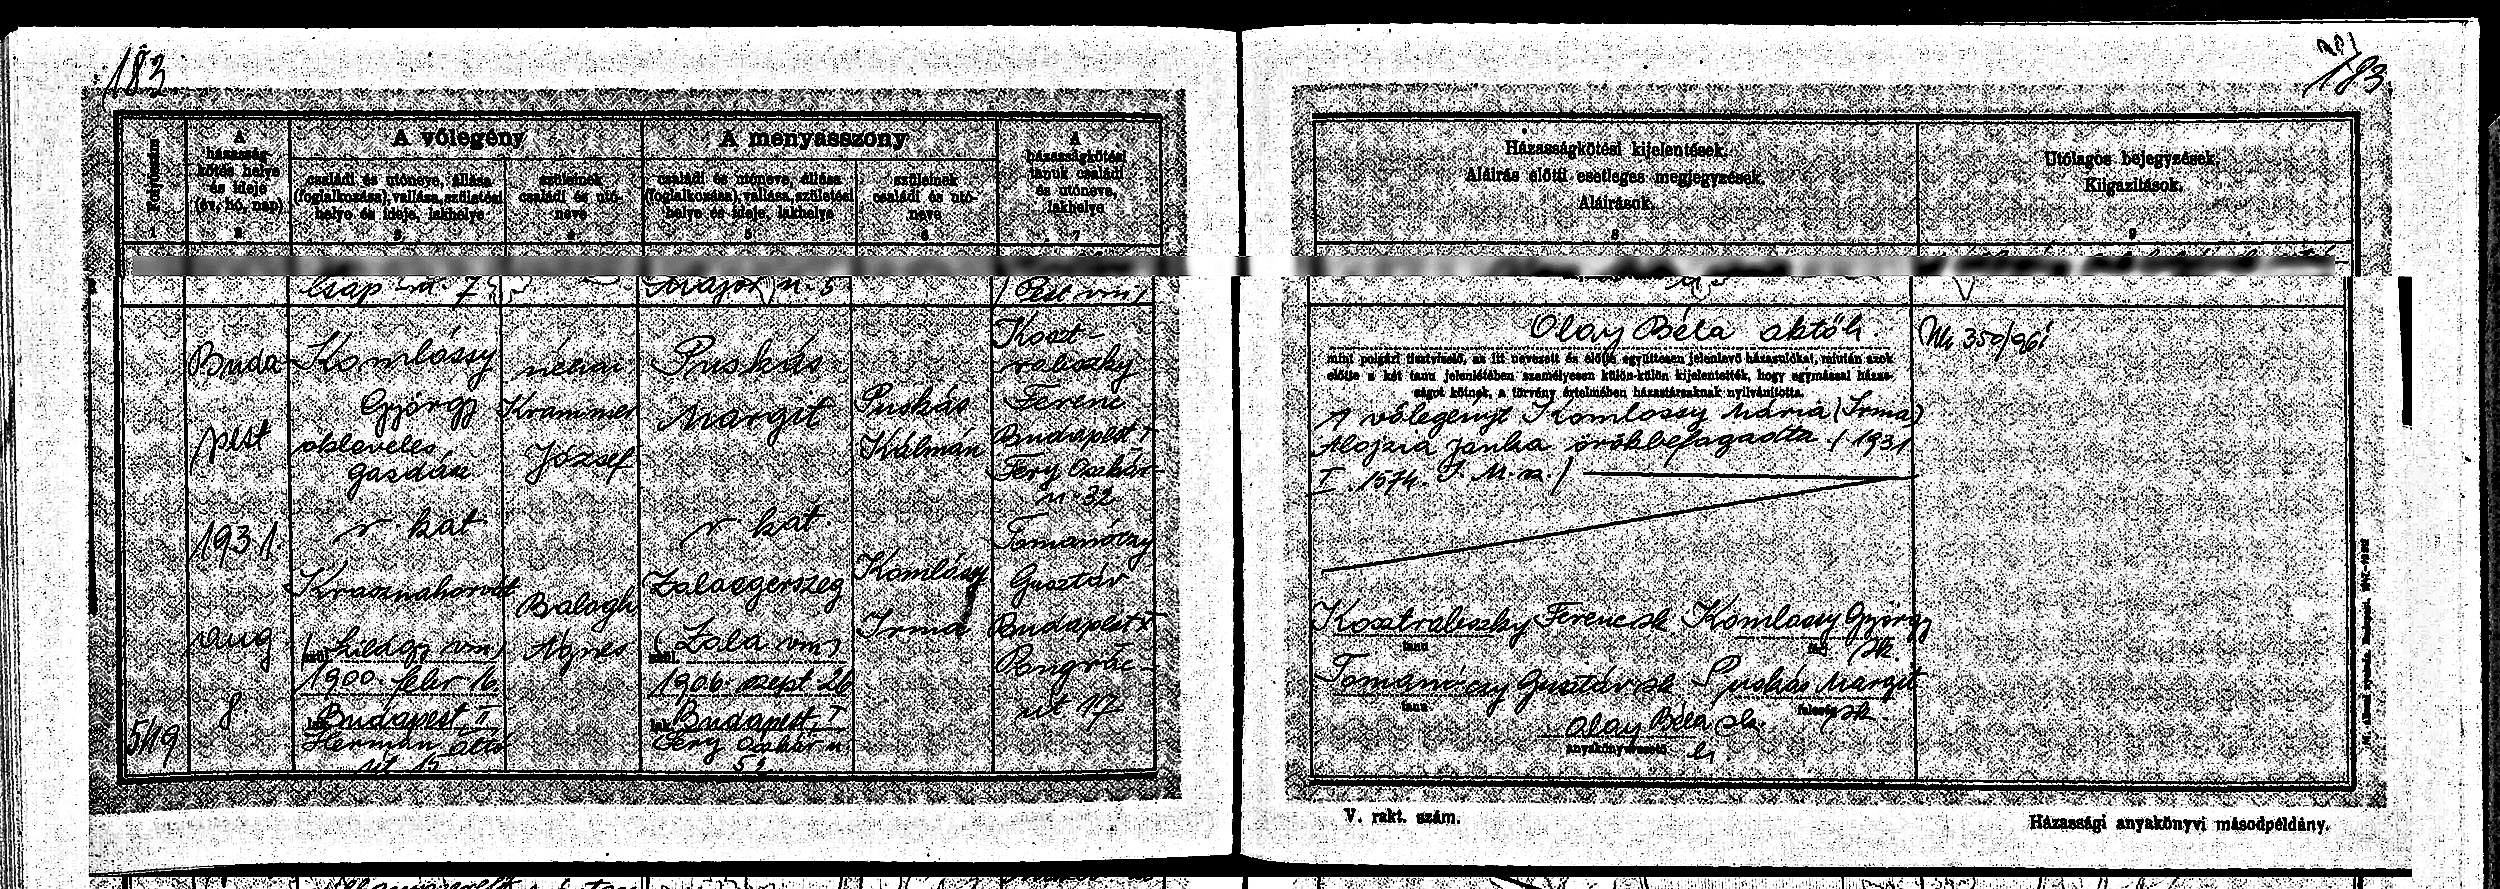 183
A vőlegény
A menyasszony
Folyószám
A
házasság-
kötés helye
és ideje
(év, hó, nap)
családi és utóneve, állása
(foglalkozása), vallása, születési
helye és ideje, lakhelye
szüleinek
családi és utó-
neve
családi és utóneve, állása
(foglalkozása), vallása, születési
helye és ideje, lakhelye
szüleinek
családi és utó-
neve
A
házasságkötési
tanuk családi
és utóneve,
lakhelye
1
2
3
4
5
6
7
519
Buda-
pest
1931
aug
8
Komlóssy
György
okleveles
gazdász
r. kat
Krasznahorvát
szül.
1900. febr 16
lak. Budapest, I
Herman Ottó
út 15
néhai
Krammer
József
Balogh
Ágnes
Puskás
Margit
r. kat.
Zalaegerszeg
szül. (Zala vm)
1906. szept 26
lak. Budapest, I
Fery Oszkár u
52
Puskás
Kálmán
Komlóssy
Irma
Koszt-
rabszky
Ferenc
Budapest I
Fery Oszkár
u. 32
Gusztáv
Budapest
Pongrác-
út 17
183
Házasságkötési kijelentések.
Aláírás előtti esetleges megjegyzések.
Aláírások.
8
Utólagos bejegyzések,
Kiigazítások.
9
Olay Béla
mint polgári tisztviselő, az itt nevezett és előtte együttesen jelenlevő házasulókat, miután azok
előtte a két tanu jelenlétében személyesen külön-külön kijelentették, hogy egymással házas-
ságot kötnek, a törvény értelmében házastársaknak nyilvánította.
A vőlegényt Komlóssy Mária (Irma)
Alojzia Janka örökbefogadta. (1931
I. 1574. I. M. sz.)
Kosztrabszky Ferenc sk Komlóssy György
tanu
férj sk.
Gusztáv sk Puskás Margit
tanu
feleség sk.
Olay Béla sk.
anyakönyvvezető
h.
V. rakt. szám.
Házassági anyakönyvi másodpéldány.